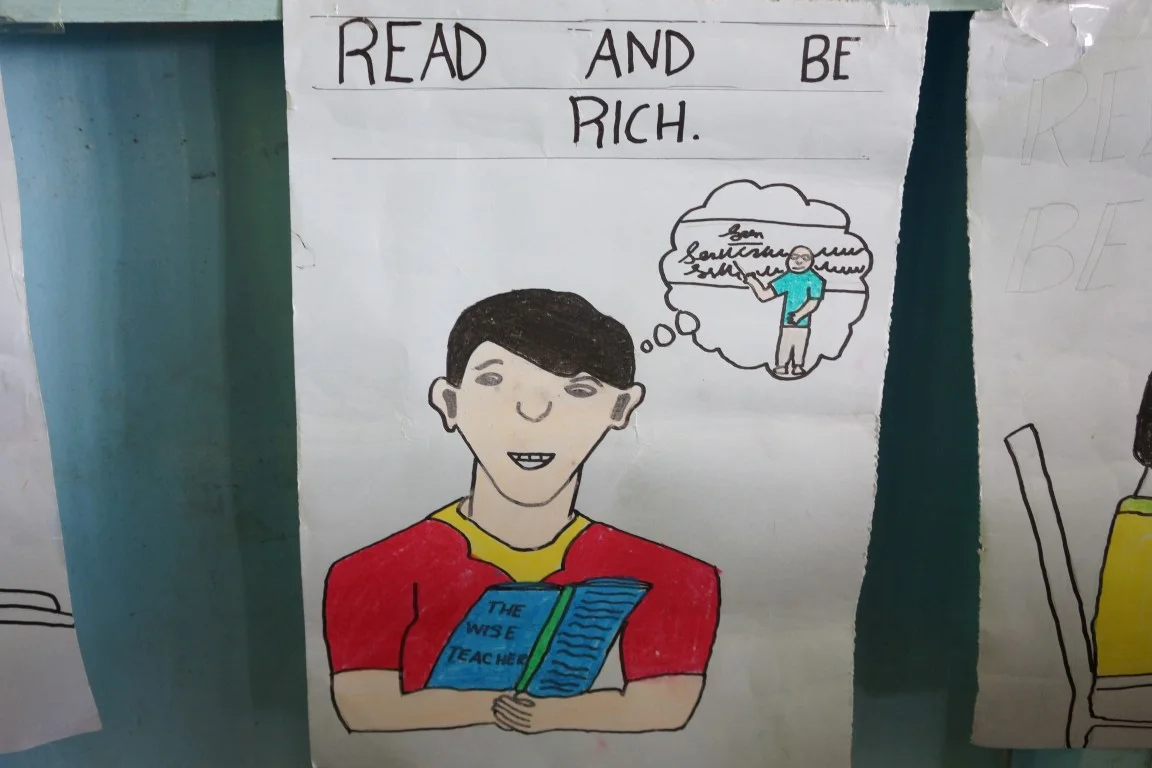 READ AND BE
RICH.
THE
WISE
TEACHER
BE